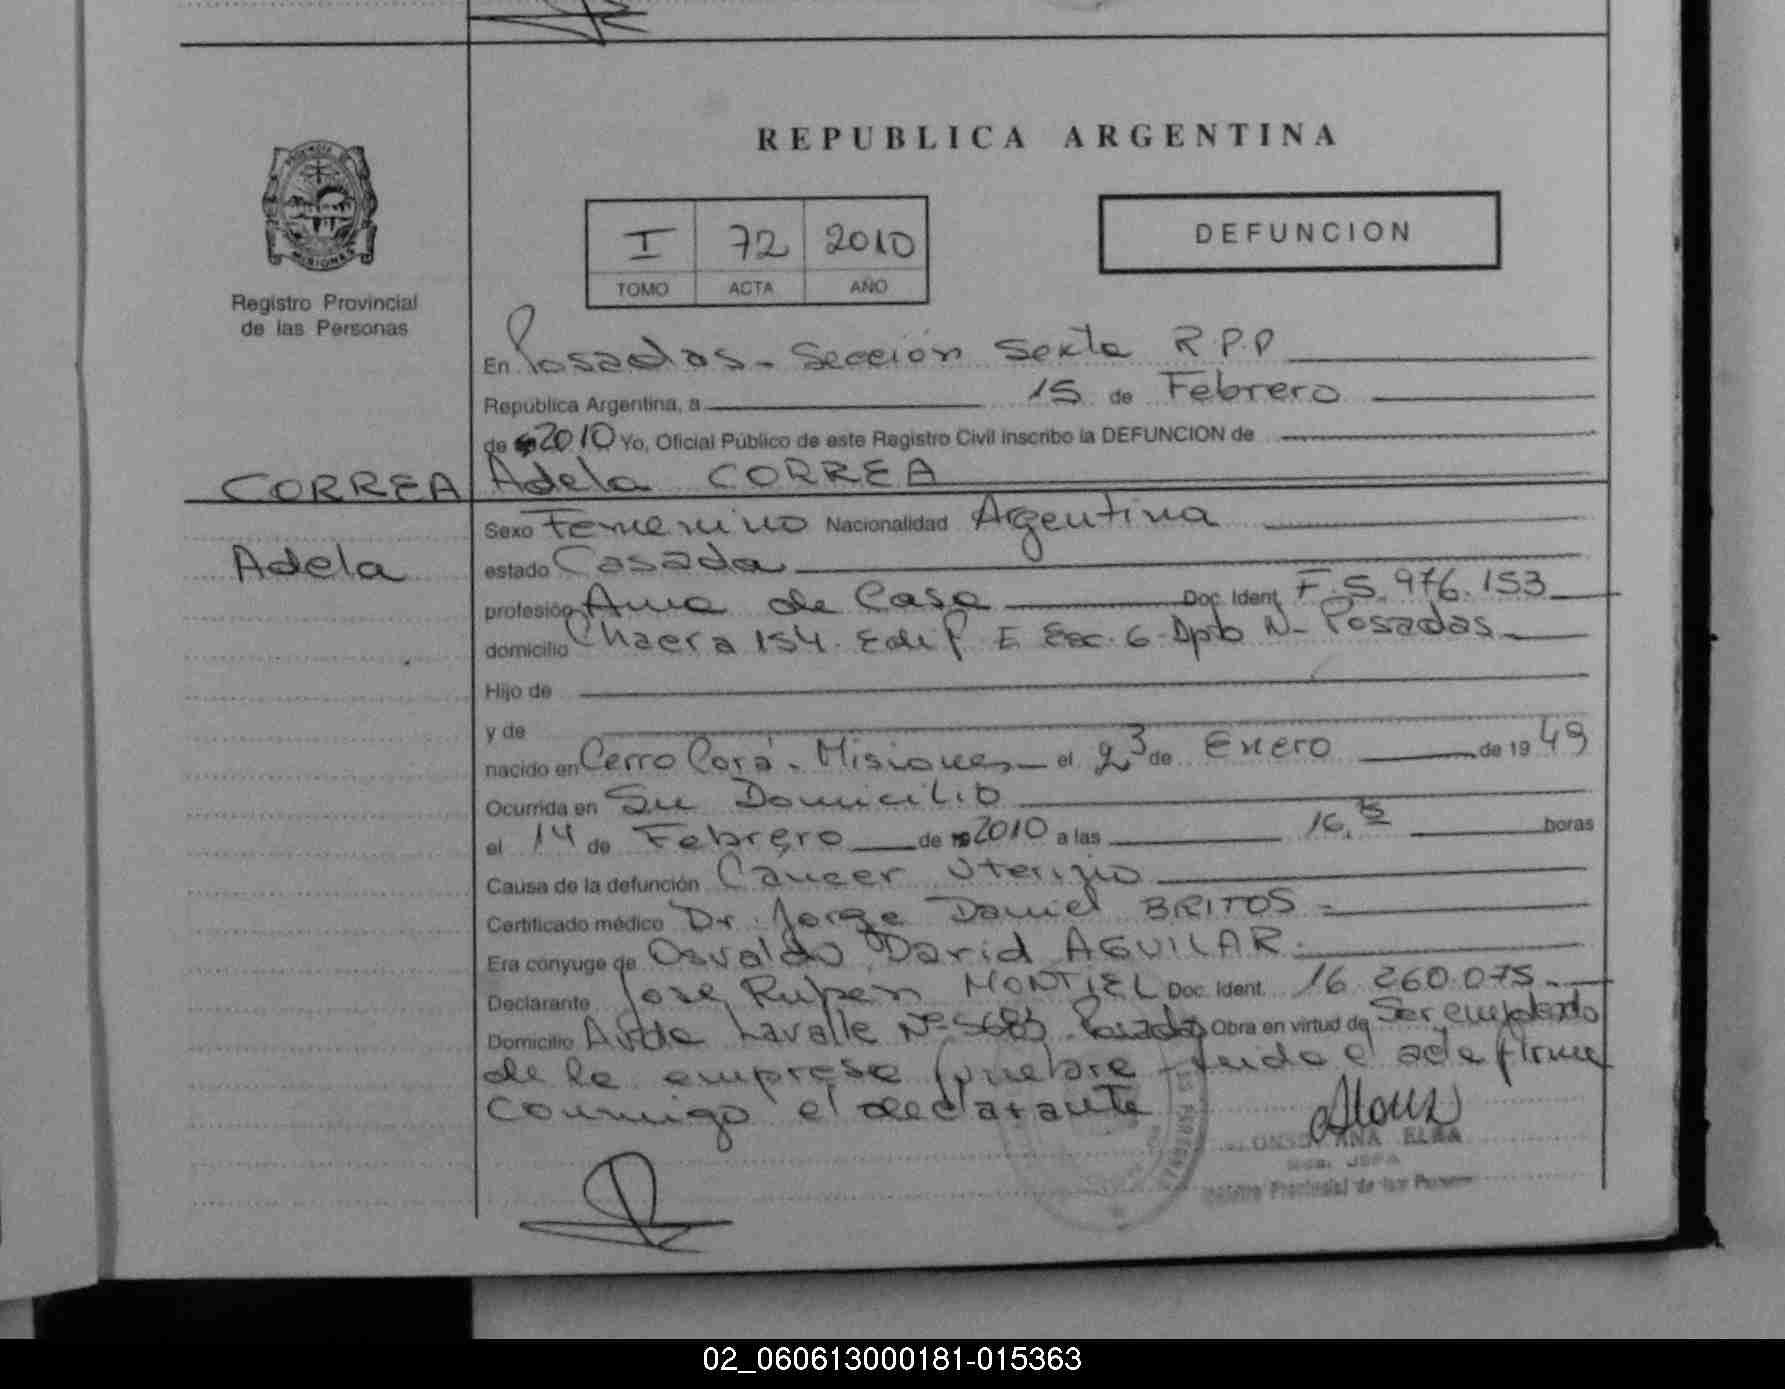 REPUBLICA ARGENTINA
PROVINCIA DE
MISIONES
Registro Provincial
de las Personas
I 72 2010
TOMO ACTA AÑO
DEFUNCION
En Posadas - Sección Sexta R.P.P
República Argentina, a 15 de Febrero
de 2010 Yo, Oficial Público de este Registro Civil inscribo la DEFUNCION de
CORREA Adela CORREA
Sexo Femenino Nacionalidad Argentina
Adela
estado Casada
profesión Ama de Casa Doc. Ident. F. 5.976.153
domicilio Chacra 154. Edif. E Esc. 6 - Dpto N - Posadas
Hijo de
y de
nacido en Cerro Corá - Misiones el 23 de Enero de 1949
Ocurrida en Su Domicilio
el 14 de Febrero de 2010 a las 16,15 horas
Causa de la defunción Cáncer Uterino
Certificado médico Dr. Jorge Daniel BRITOS
Era cónyuge de Osvaldo David AGUILAR
Declarante José Ruben MONTIEL Doc. Ident. 16.260.075
Domicilio Avda Lavalle Nº 5683 Posadas Obra en virtud de Ser empleado
de la empresa funebre leido el acta firma
conmigo el declarante
ALONSO ANA ELBA
JEFA
Registro Provincial de las Personas
02_060613000181-015363